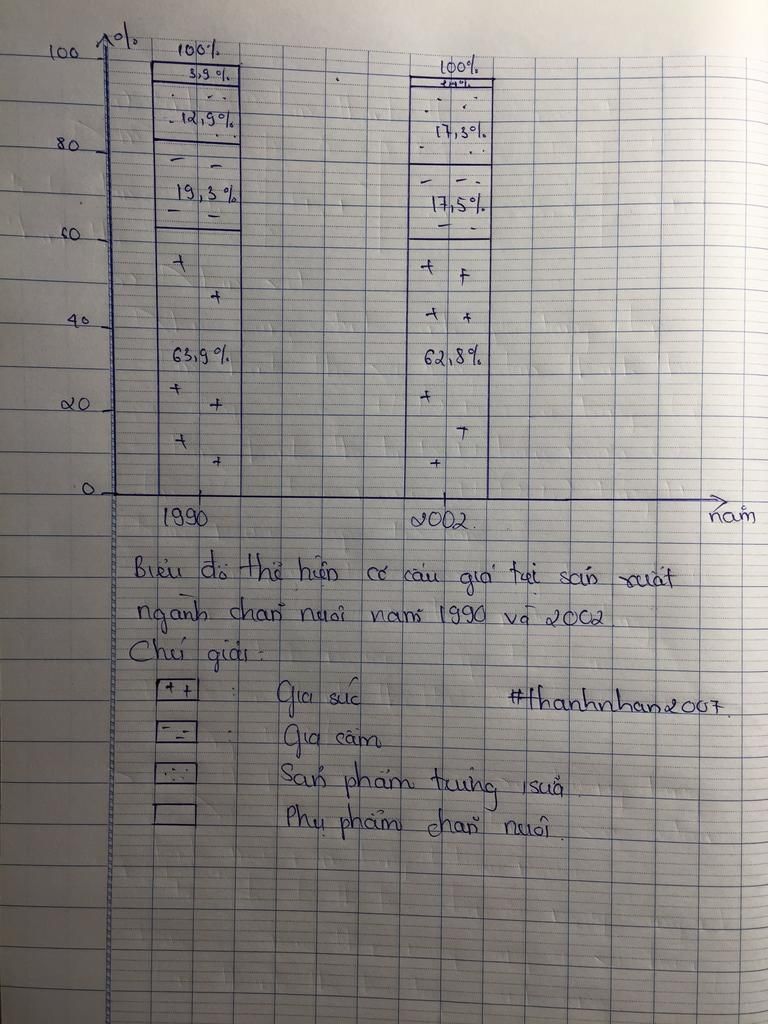 %
100
100%
100%
3,9%
12,9%
17,3%
80
19,3%
17,5%
60
40
63,9%
62,8%
20
0
1990
2002
năm
Biểu đồ thể hiện cơ cấu giá trị sản xuất
ngành chăn nuôi năm 1990 và 2002
Chú giải:
++ : Gia súc
#thanhnhan2007.
-- : Gia cầm
Sản phẩm trứng, sữa
Phụ phẩm chăn nuôi.